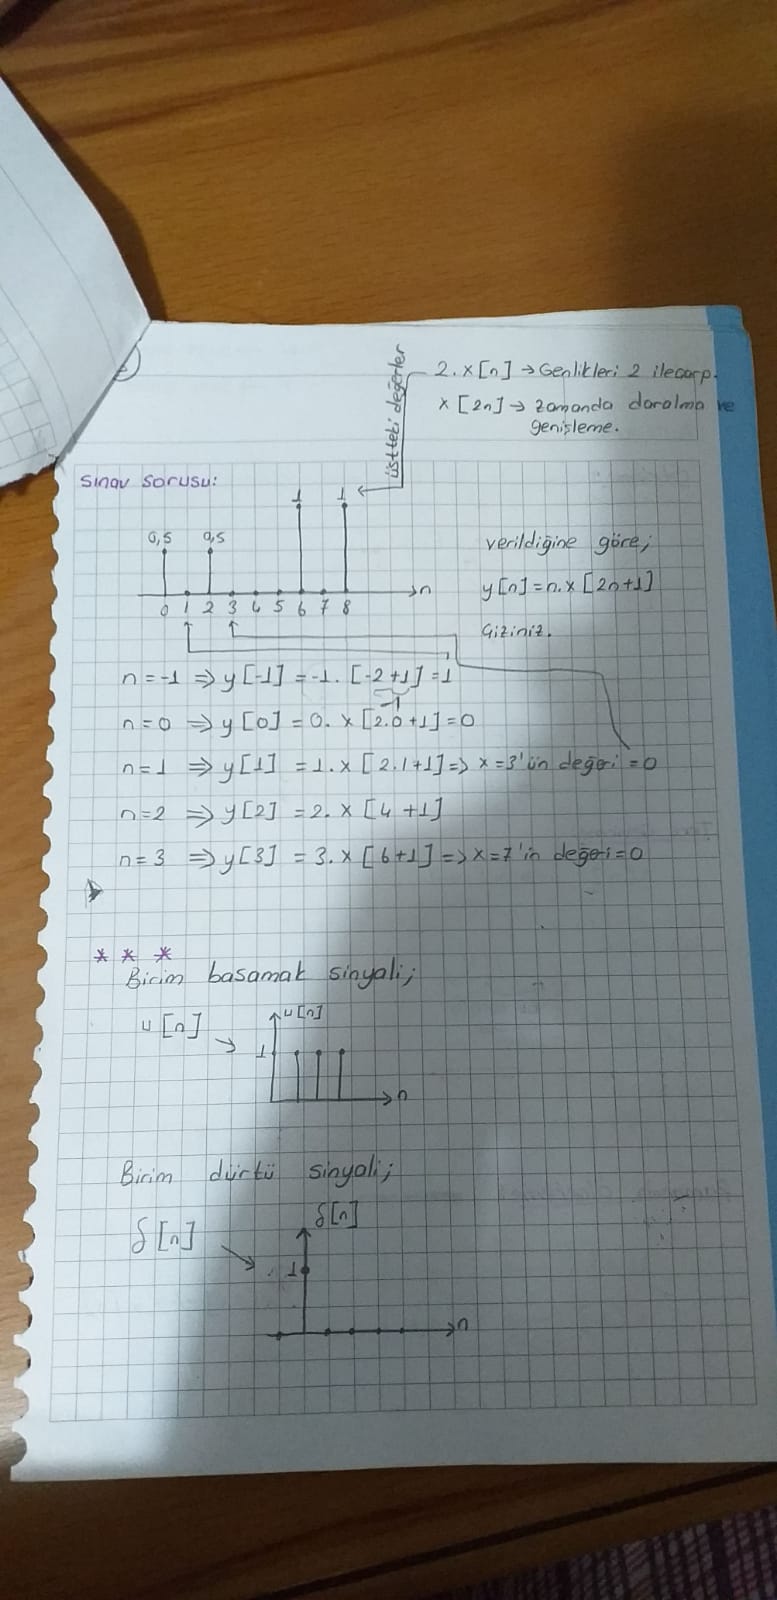 2.x[n] → Genlikleri 2 ile çarp.
x[2n] → zamanda daralma ve
genişleme.
üstteki değerler
Sınav sorusu:
1 1
0,5 0,5
n
0 1 2 3 4 5 6 7 8
verildiğine göre;
y[n]=n.x[2n+1]
Çiziniz.
n=-1 ⇒ y[-1] = -1.[-2+1] = 1
-1
n=0 ⇒ y[0] = 0.x[2.0+1] = 0
n=1 ⇒ y[1] = 1.x[2.1+1] ⇒ x=3'ün değeri = 0
n=2 ⇒ y[2] = 2.x[4+1]
n=3 ⇒ y[3] = 3.x[6+1] ⇒ x=7'in değeri = 0
* * *
Birim basamak sinyali;
u[n] → u[n]
1
n
Birim dürtü sinyali;
δ[n]
δ[n]
1
n